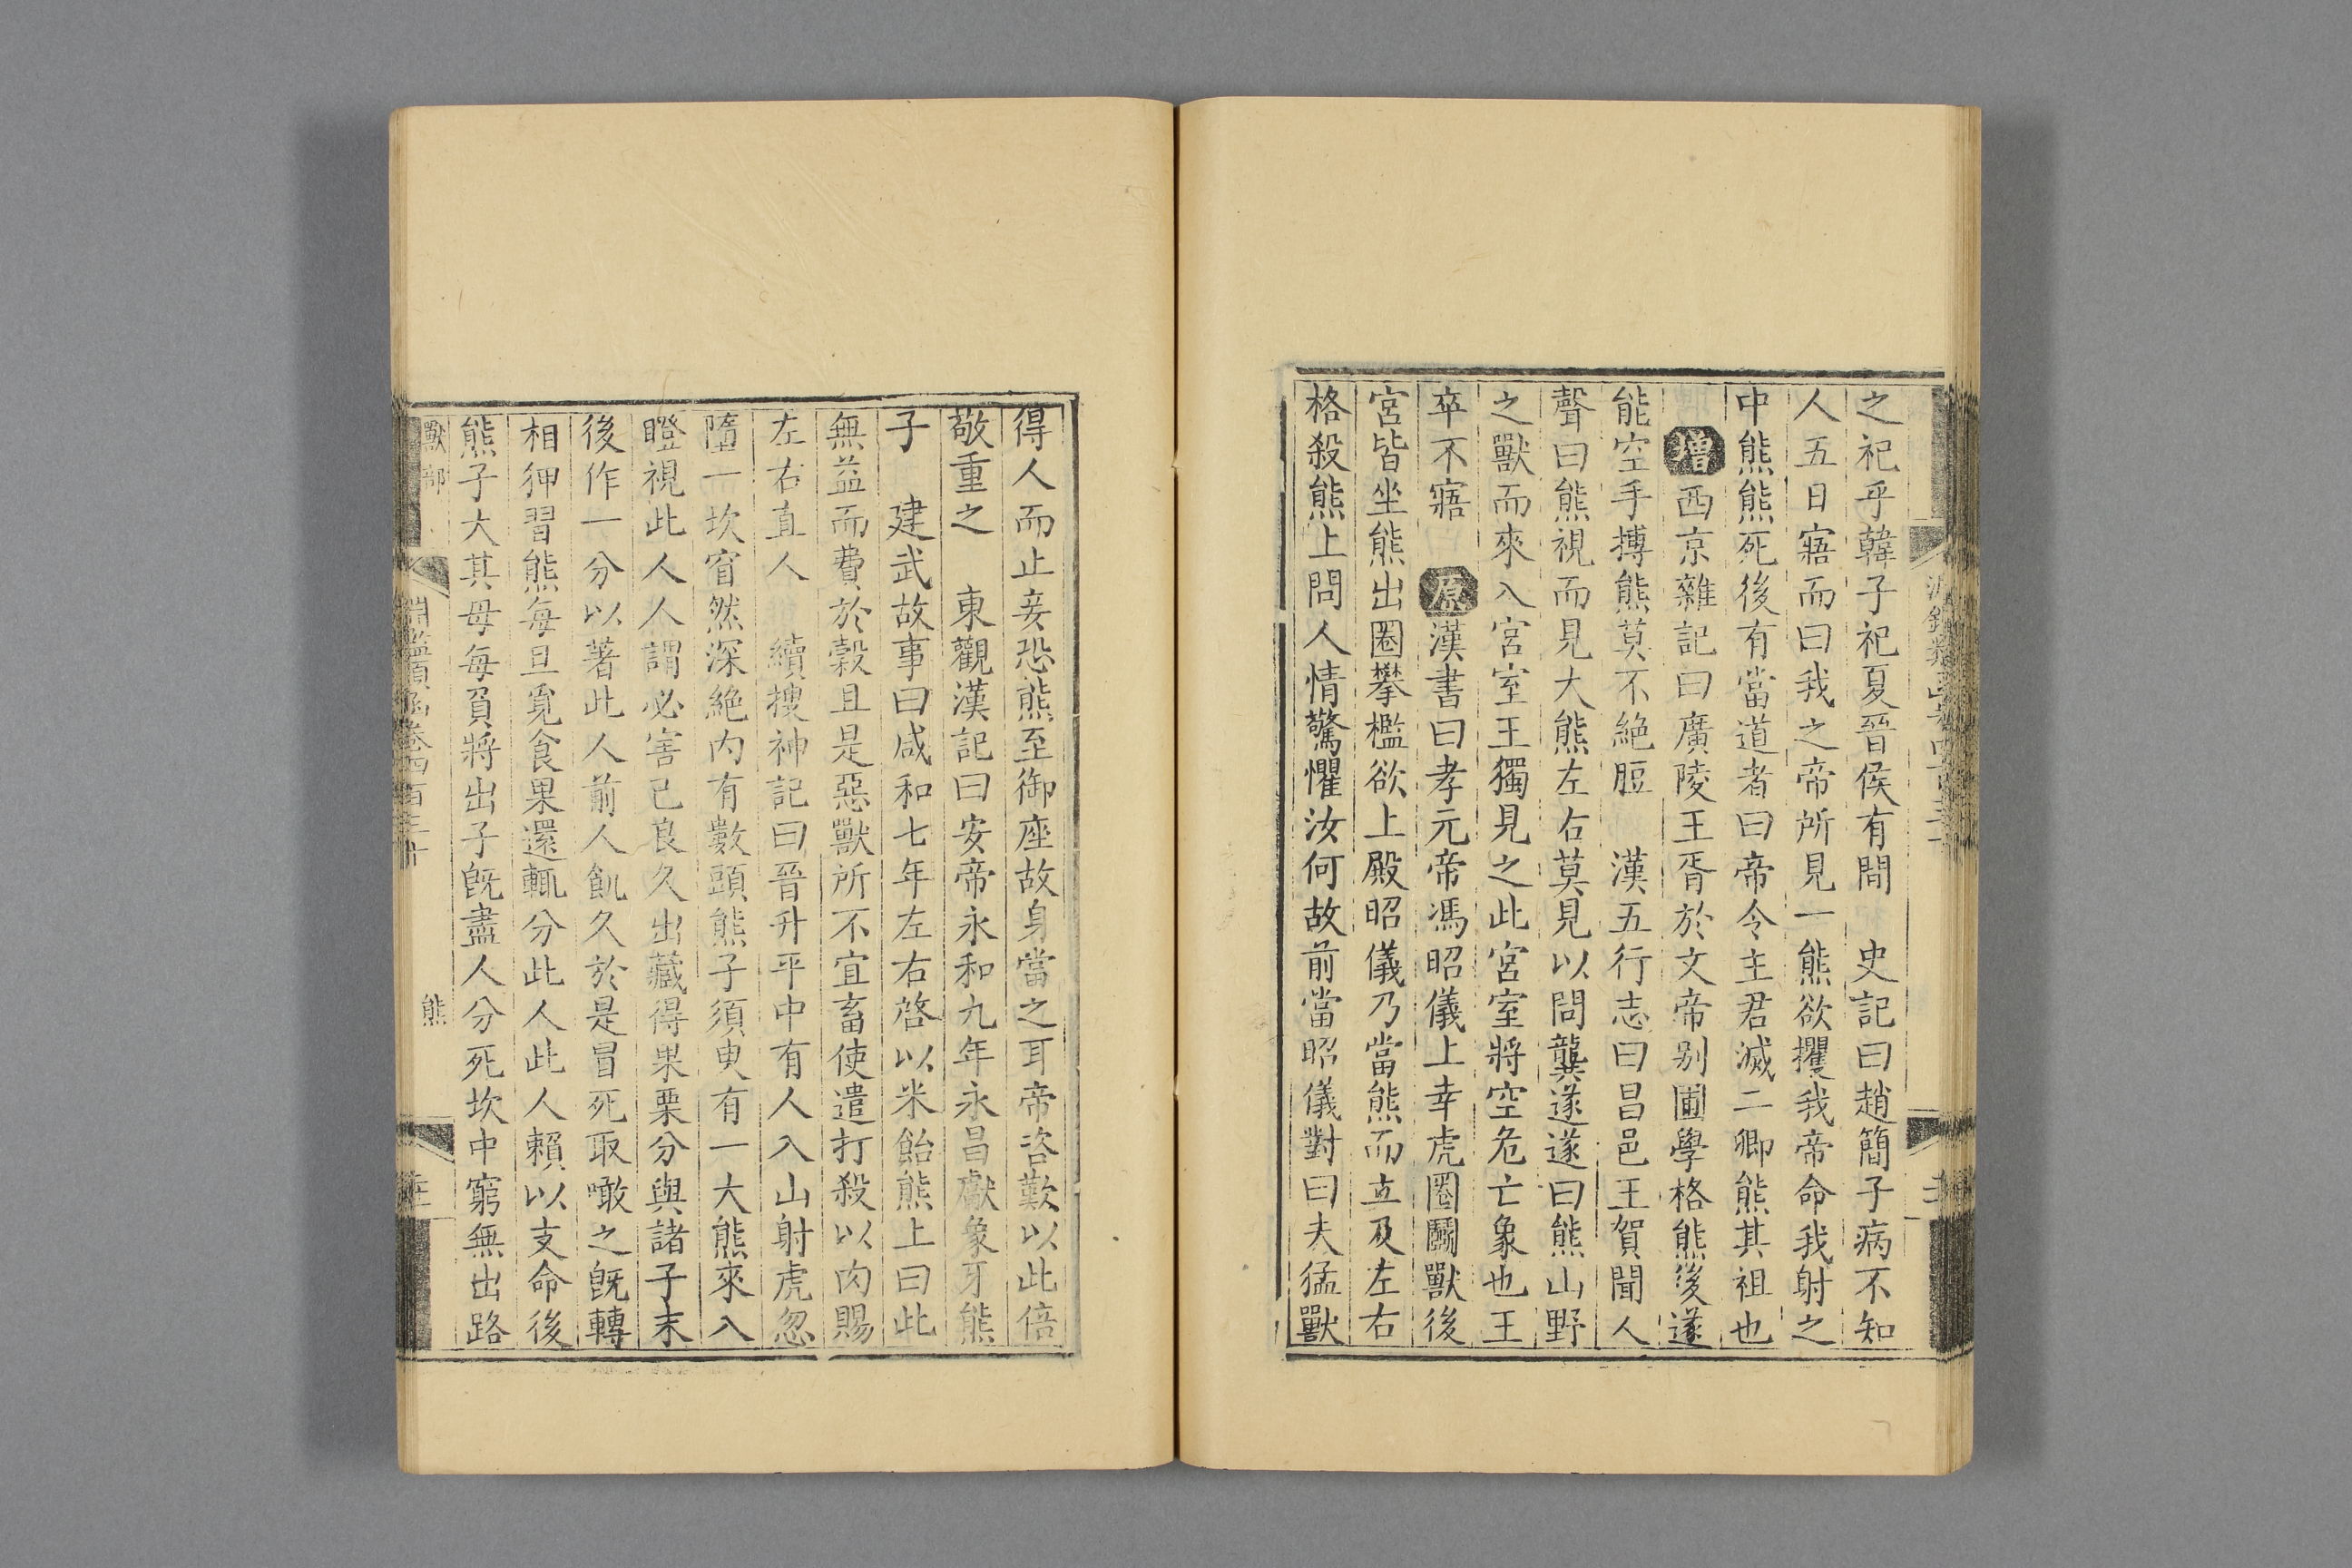 之祀乎韓子祀夏晉侯有間　史記曰趙簡子病不知
人五日寤而曰我之帝所見一熊欲攫我帝命我射之
中熊熊死後有當道者曰帝令主君滅二卿熊其祖也
增西京雜記曰廣陵王胥於文帝别圃學格熊後遂
能空手搏熊莫不絶脰　漢五行志曰昌邑王賀聞人
聲曰熊視而見大熊左右莫見以問龔遂遂曰熊山野
之獸而來入宮室王獨見之此宮室將空危亡象也王
卒不寤　原漢書曰孝元帝馮昭儀上幸虎圈鬭獸後
宮皆坐熊出圈攀檻欲上殿昭儀乃當熊而立及左右
格殺熊上問人情驚懼汝何故前當昭儀對曰夫猛獸
得人而止妾恐熊至御座故身當之耳帝咨歎以此倍
敬重之　東觀漢記曰安帝永和九年永昌獻象牙熊
子　建武故事曰咸和七年左右啓以米飴熊上曰此
無益而費於穀且是惡獸所不宜畜使遣打殺以肉賜
左右直人　續搜神記曰晉升平中有人入山射虎忽
墮一坎窅然深絶内有數頭熊子須臾有一大熊來入
瞪視此人人謂必害已良久出藏得果栗分與諸子末
後作一分以著此人前人飢久於是冒死取噉之旣轉
相狎習熊每旦覓食果還輒分此人此人賴以支命後
熊子大其母每負將出子旣盡人分死坎中窮無出路
獸部
淵鑑類函卷四百三十
熊